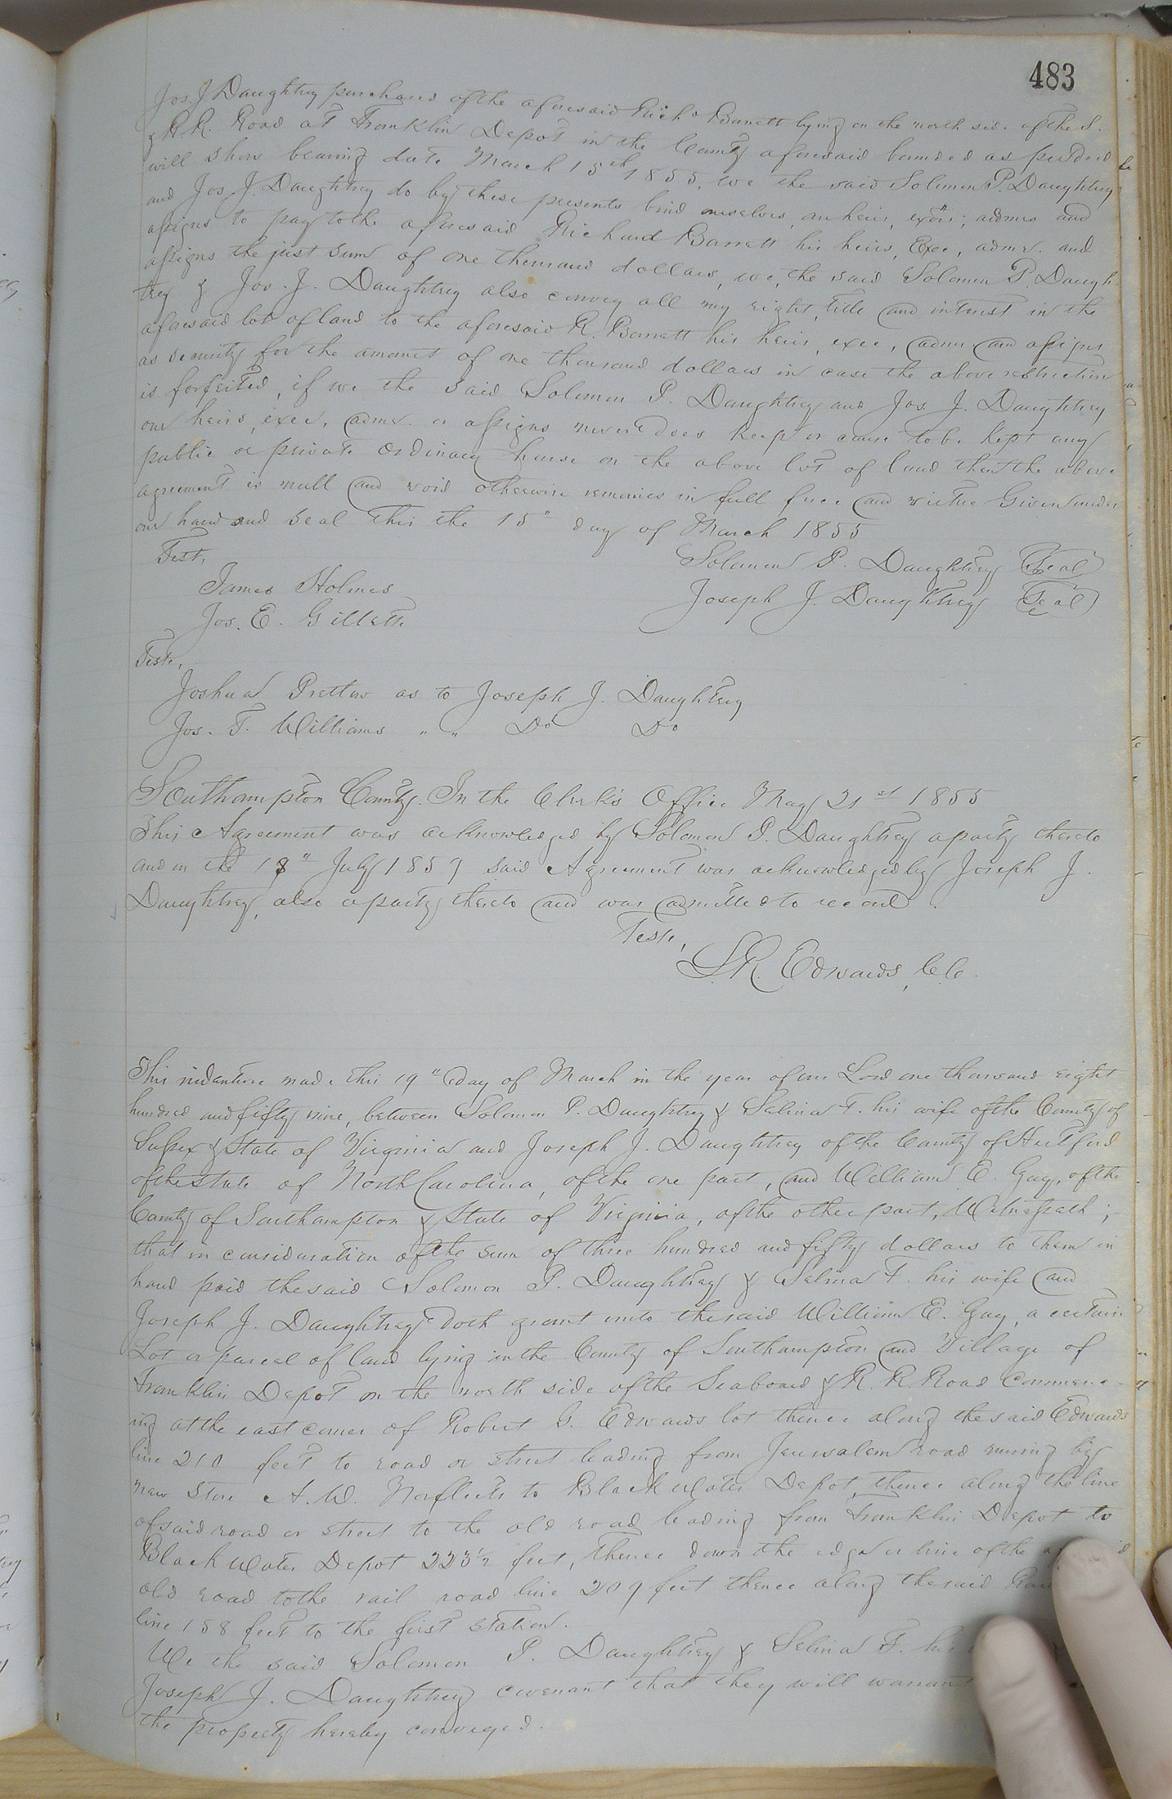 483
Jos. J Daughtrey purchased of the aforesaid Richd Barrett lying on the north side of the S.
& R. R. Road at Franklin Depot in the County aforesaid bounded as per deed
will show bearing date March 15th 1855, we the said Solomon P. Daughtrey
and Jos. J. Daughtrey do by these presents bind ourselves, our heirs, exors; admrs and
assigns to pay to the aforesaid Richard Barrett his heirs, Exec, admr. and
assigns the just sum of one thousand dollars, we, the said Solomon P. Daugh
trey & Jos. J. Daughtrey also convey all my right, title and intrust in the
aforesaid lot of land to the aforesaid R. Barrett his heirs, exec, admr and assigns
as security for the amount of one thousand dollars in case the above restriction
is forfeited, if we the said Solomon P. Daughtrey and Jos J. Daughtrey
our heirs, exec, admr. or assigns never does keep or cause to be kept any
public or private ordinary house on the above lot of land then the above
agreement is null and void otherwise remains in full force and virtue Given under
our hand and seal this the 15" day of March 1855
Test,
Solomon P. Daughtrey (Seal)
James Holmes
Joseph J. Daughtrey (Seal)
Jos. E. Gillette
Teste,
Joshua Pretlow as to Joseph J. Daughtrey
Jos. T. Williams " " Do Do
Southampton County. In the Clerk's Office May 21st 1855
This Agreement was acknowledged by Solomon P. Daughtrey a party thereto
and on the 18" July 1857 said Agreement was acknowledged by Joseph J.
Daughtrey, also a party thereto and was admitted to record.
Teste,
L. R. Edwards, C. C.
This indenture made this 19" day of March in the year of our Lord one thousand eight
hundred and fifty nine, between Solomon P. Daughtrey & Selina F. his wife of the County of
Sussex & State of Virginia and Joseph J. Daughtrey of the County of Hertford
of the State of North Carolina, of the one part, and William E. Gay, of the
County of Southampton & State of Virginia, of the other part, Witnesseth;
that in consideration of the sum of three hundred and fifty dollars to them in
hand paid the said Solomon P. Daughtrey & Selina F. his wife and
Joseph J. Daughtrey doth grant unto the said William E. Gay, a certain
Lot or parcel of land lying in the County of Southampton and Village of
Franklin Depot on the north side of the Seaboard & R. R. Road Commenc
ing at the east corner of Robert G. Edwards lot thence along the said Edwards
line 210 feet to road or street leading from Jerusalem road running by
new Store A. W. Norfleets to Black Water Depot, thence along the line
of said road or street to the old road leading from Franklin Depot to
Black Water Depot 223½ feet, thence down the edge or line of the
old road to the rail road line 209 feet thence along the said
line 158 feet to the first station.
We the said Solomon P. Daughtrey & Selina F. his
Joseph J. Daughtrey covenant that they will warrant
the property hereby conveyed.